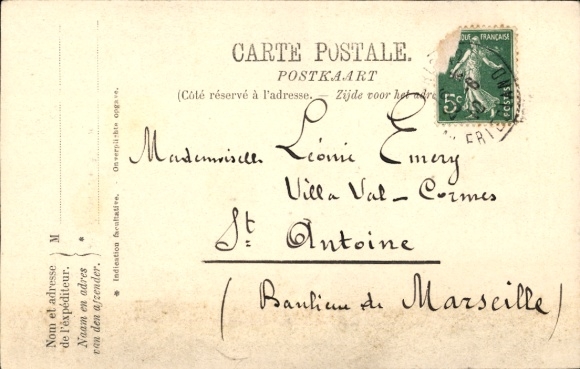 CARTE POSTALE.
POSTKAART
(Côté réservé à l'adresse. — Zijde voor het adre
QUE FRANÇAISE
5c
POSTES
Mademoiselle Léonie Emery
Villa Val-Cormes
St Antoine
(Banlieue de Marseille)
* Indication facultative. - Onverplichte opgave.
M *
Nom et adresse
de l'expéditeur.
Naam en adres
van den afzender.